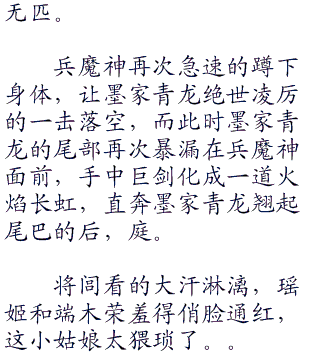 无匹。
兵魔神再次急速的蹲下
身体，让墨家青龙绝世凌厉
的一击落空，而此时墨家青
龙的尾部再次暴漏在兵魔神
面前，手中巨剑化成一道火
焰长虹，直奔墨家青龙翘起
尾巴的后，庭。
将闾看的大汗淋漓，瑶
姬和端木荣羞得俏脸通红，
这小姑娘太猥琐了。。